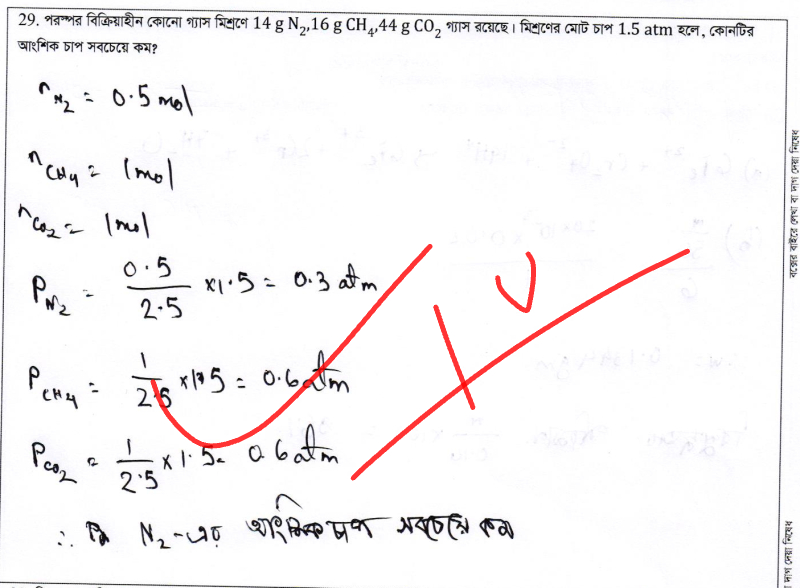 29. পরস্পর বিক্রিয়াহীন কোনো গ্যাস মিশ্রণে 14 g N₂,16 g CH₄,44 g CO₂ গ্যাস রয়েছে। মিশ্রণের মোট চাপ 1.5 atm হলে, কোনটির
আংশিক চাপ সবচেয়ে কম?
n_N₂ = 0.5 mol
n_CH₄ = 1 mol
n_CO₂ = 1 mol
P_N₂ = 0.5/2.5 × 1.5 = 0.3 atm
P_CH₄ = 1/2.5 × 1.5 = 0.6 atm
P_CO₂ = 1/2.5 × 1.5 = 0.6 atm
∴ N₂-এর আংশিক চাপ সবচেয়ে কম
বক্সের বাইরে লেখা বা দাগ দেয়া নিষেধ
দাগ দেয়া নিষেধ